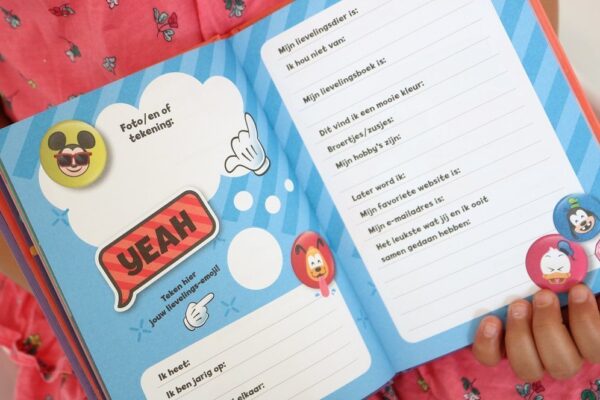 Foto/en of
tekening:
YEAH
Teken hier
jouw lievelings-emoji!
Ik heet:
Ik ben jarig op:
elkaar:
Mijn lievelingsdier is:
Ik hou niet van:
Mijn lievelingsboek is:
Dit vind ik een mooie kleur:
Broertjes/zusjes:
Mijn hobby's zijn:
Later word ik:
Mijn favoriete website is:
Mijn e-mailadres is:
Het leukste wat jij en ik ooit
samen gedaan hebben: